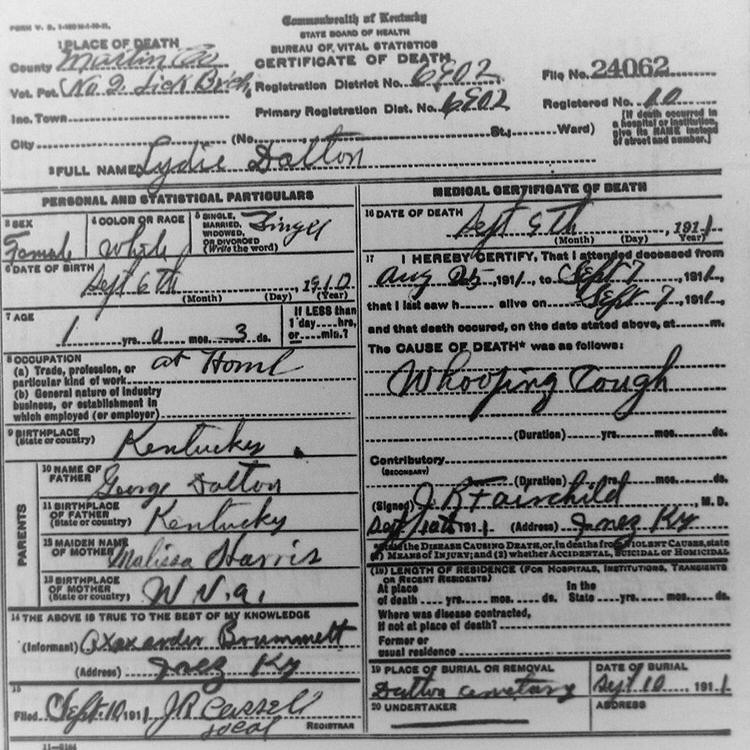 Commonwealth of Kentucky
STATE BOARD OF HEALTH
BUREAU OF VITAL STATISTICS
CERTIFICATE OF DEATH
1 PLACE OF DEATH
County Martin Co
Vot. Pct. No 2. Lick Brch
Inc. Town
City (No. St.; Ward)
Registration District No. 6902
Primary Registration Dist. No. 6902
File No. 24062
Registered No. 10
[If death occurred in
a hospital or institution,
give its NAME instead
of street and number.]
2 FULL NAME Lydie Dalton
PERSONAL AND STATISTICAL PARTICULARS
3 SEX
Female
4 COLOR OR RACE
White
5 SINGLE,
MARRIED,
WIDOWED,
OR DIVORCED
(Write the word)
Single
6 DATE OF BIRTH
Sept 6th, 1910
(Month) (Day) (Year)
7 AGE
1 yrs. 0 mos. 3 ds.
If LESS than
1 day hrs.
or min.?
8 OCCUPATION
(a) Trade, profession, or
particular kind of work at Home
(b) General nature of industry
business, or establishment in
which employed (or employer)
9 BIRTHPLACE
(State or country) Kentucky.
PARENTS
10 NAME OF
FATHER George Dalton
11 BIRTHPLACE
OF FATHER
(State or country) Kentucky
12 MAIDEN NAME
OF MOTHER Malissa Harris
13 BIRTHPLACE
OF MOTHER
(State or country) W Va.
14 THE ABOVE IS TRUE TO THE BEST OF MY KNOWLEDGE
(Informant) Brummett
(Address) Inez Ky
15
Filed Sept. 10 1911 J.R. Cassell
Local REGISTRAR
MEDICAL CERTIFICATE OF DEATH
16 DATE OF DEATH
Sept, 1911
(Month) (Day) Year)
17 I HEREBY CERTIFY, That I attended deceased from
Aug 25, 1911, to Sept 7, 1911,
that I last saw h alive on Sept 7, 1911,
and that death occured, on the date stated above, at m.
The CAUSE OF DEATH* was as follows:
Whooping Cough
(Duration) yrs. mos. ds.
Contributory
(SECONDARY)
(Duration) yrs. mos. ds.
(Signed) J. R Fairchild M. D.
Sept 1911 (Address) Inez Ky
State the DISEASE CAUSING DEATH, or, in deaths from VIOLENT CAUSES, state
(1) MEANS OF INJURY; and (2) whether ACCIDENTAL, SUICIDAL OR HOMICIDAL
(18) LENGTH OF RESIDENCE (FOR HOSPITALS, INSTITUTIONS, TRANSIENTS
OR RECENT RESIDENTS)
At place
of death yrs. mos. ds.
In the
State yrs. mos. ds.
Where was disease contracted,
if not at place of death?
Former or
usual residence
19 PLACE OF BURIAL OR REMOVAL
Dalton cemetary
DATE OF BURIAL
Sept 10, 1911
20 UNDERTAKER
ADDRESS